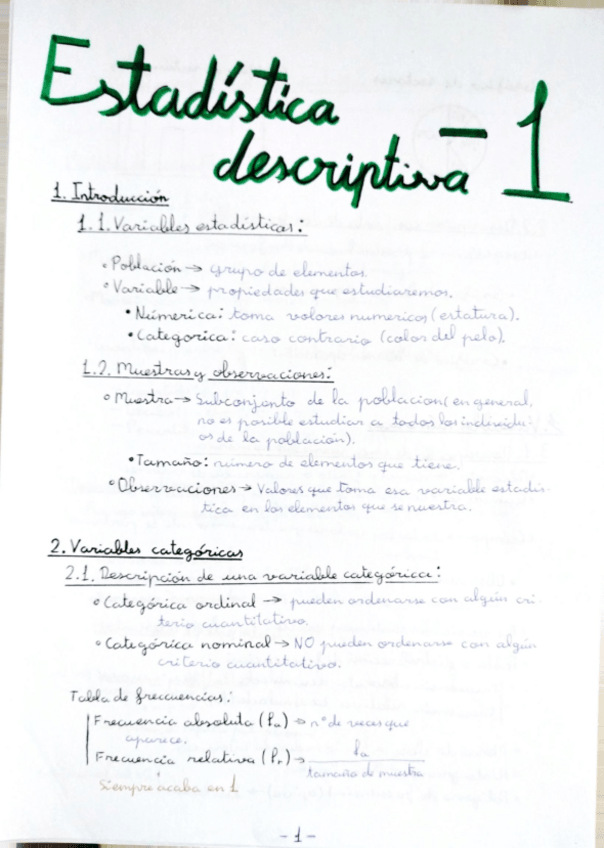 Estadística
descriptiva - 1
1. Introducción
1.1. Variables estadísticas:
• Población → grupo de elementos.
• Variable → propiedades que estudiaremos.
• Númerica: toma valores numericos (estatura).
• Categorica: caso contrario (color del pelo).
1.2. Muestras y observaciones:
• Muestra → Subconjunto de la poblacion (en general,
no es posible estudiar a todos los individu-
os de la población).
• Tamaño: número de elementos que tiene.
• Observaciones → Valores que toma esa variable estadís-
tica en los elementos que se muestra.
2. Variables categóricas
2.1. Descripción de una variable categórica:
• Categórica ordinal → pueden ordenarse con algún cri-
terio cuantitativo.
• Categórica nominal → NO pueden ordenarse con algún
criterio cuantitativo.
Tabla de frecuencias:
Frecuencia absoluta (fa) → nº de veces que
aparece.
Frecuencia relativa (fr) → fa
tamaño de muestra
Siempre acaba en 1
- 1 -